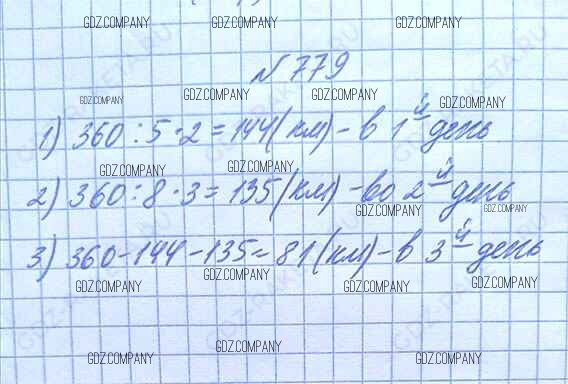 GDZ.COMPANY GDZ.COMPANY GDZ.COMPANY
№779
GDZ.COMPANY GDZ.COMPANY GDZ.COMPANY GDZ.COMPANY
1) 360:5·2=144(км)-в 1й день
GDZ.COMPANY GDZ.COMPANY
2) 360:8·3=135(км)-во 2й день
GDZ.COMPANY GDZ.COMPANY
3) 360-144-135=81(км)-в 3й день
GDZ.COMPANY GDZ.COMPANY GDZ.COMPANY GDZ.COMPANY
GDZ.COMPANY GDZ.COMPANY GDZ.COMPANY